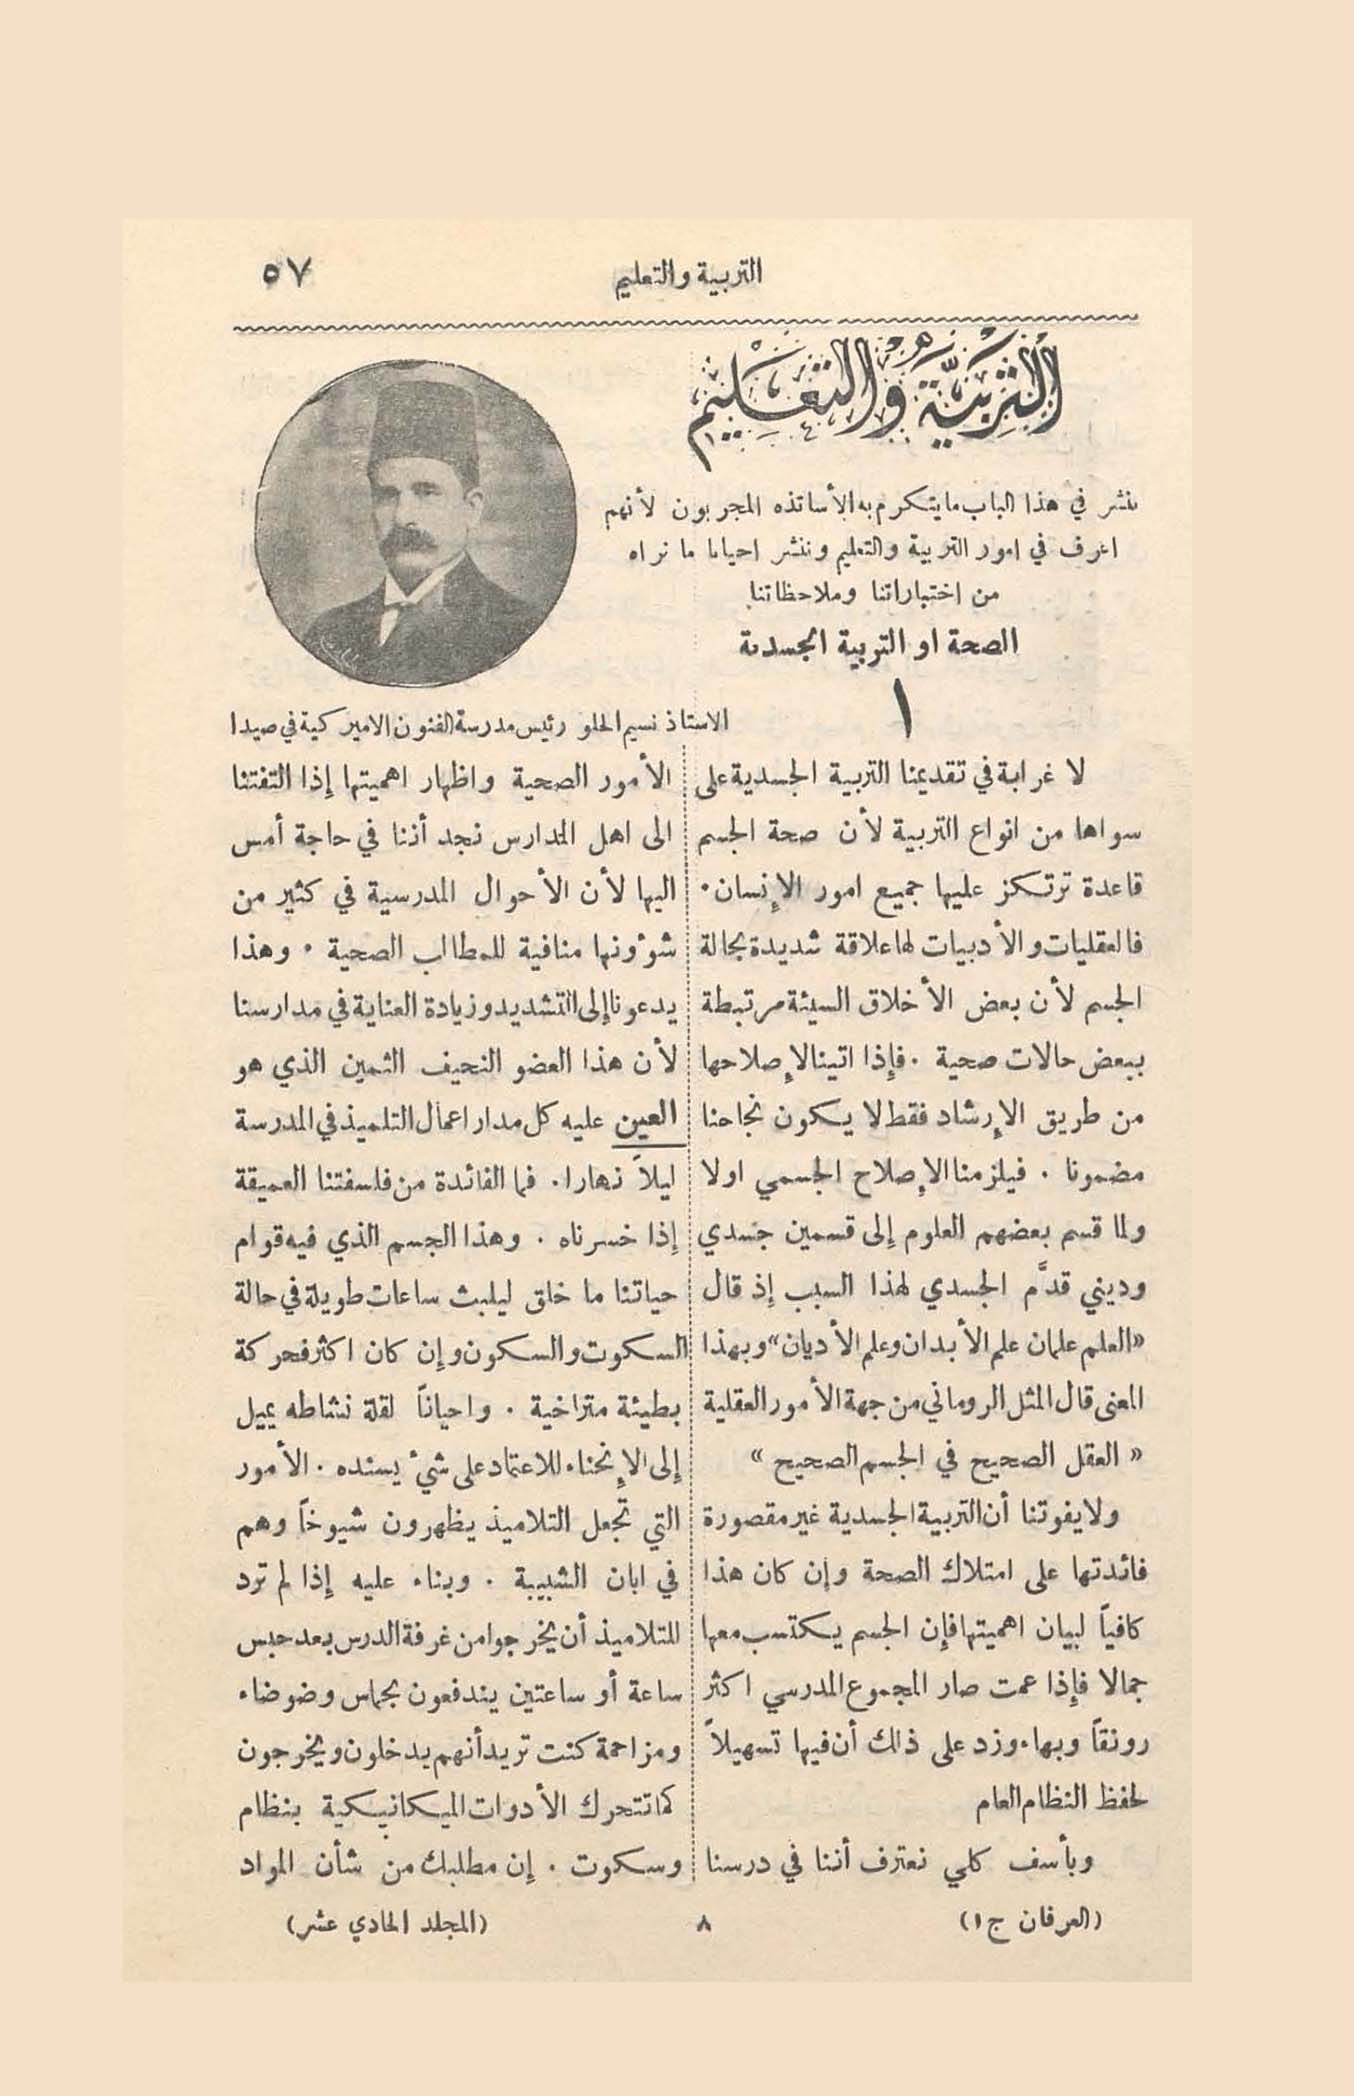 التربية والتعليم ٥٧
التربية والتعليم
ننشر في هذا الباب ما يتكرم به الأساتذه المجربون لأنهم
اعرف في امور التربية والتعليم وننشر احيانا ما نراه
من اختباراتنا وملاحظاتنا
الصحة او التربية الجسدية
١
الاستاذ نسيم الحلو رئيس مدرسة الفنون الاميركية في صيدا
لا غرابة في تقديمنا التربية الجسدية على
سواها من انواع التربية لأن صحة الجسم
قاعدة ترتكز عليها جميع امور الإنسان .
فالعقليات والأدبيات لها علاقة شديدة بحالة
الجسم لأن بعض الأخلاق السيئة مرتبطة
ببعض حالات صحية . فإذا اتينا لإصلاحها
من طريق الإرشاد فقط لا يكون نجاحنا
مضمونا . فيلزمنا الإصلاح الجسمي اولا
ولما قسم بعضهم العلوم إلى قسمين جسدي
وديني قدَّم الجسدي لهذا السبب إذ قال
«العلم علمان علم الأبدان وعلم الأديان» وبهذا
المعنى قال المثل الروماني من جهة الأمور العقلية
« العقل الصحيح في الجسم الصحيح »
ولا يفوتنا أن التربية الجسدية غير مقصورة
فائدتها على امتلاك الصحة وإن كان هذا
كافياً لبيان اهميتها فإن الجسم يكتسب معها
جمالا فإذا عمت صار المجموع المدرسي اكثر
رونقاً وبهاء وزد على ذلك أن فيها تسهيلاً
لحفظ النظام العام
وبأسف كلي نعترف أننا في درسنا
الأمور الصحية واظهار اهميتها إذا التفتنا
الى اهل المدارس نجد أننا في حاجة أمس
اليها لأن الأحوال المدرسية في كثير من
شؤونها منافية للمطالب الصحية . وهذا
يدعونا إلى التشديد وزيادة العناية في مدارسنا
لأن هذا العضو النحيف الثمين الذي هو
العين عليه كل مدار اعمال التلميذ في المدرسة
ليلاً نهارا . فما الفائدة من فلسفتنا العميقة
إذا خسرناه . وهذا الجسم الذي فيه قوام
حياتنا ما خلق ليلبث ساعات طويلة في حالة
السكوت والسكون وإن كان اكثر فحركة
بطيئة متراخية . واحياناً لقلة نشاطه يميل
إلى الإنحناء للاعتماد على شيء يسنده . الأمور
التي تجعل التلاميذ يظهرون شيوخاً وهم
في ابان الشبيبة . وبناء عليه إذا لم ترد
للتلاميذ أن يخرجوا من غرفة الدرس بعد حبس
ساعة أو ساعتين يندفعون بحماس وضوضاء
ومزاحمة كنت تريد أنهم يدخلون ويخرجون
كما تتحرك الأدوات الميكانيكية بنظام
وسكوت . إن مطلبك من شأن المواد
(العرفان ج١) ٨ (المجلد الحادي عشر)